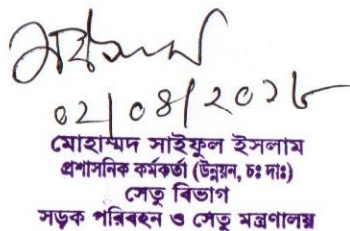 ০২|০৪|২০১৮
মোহাম্মদ সাইফুল ইসলাম
প্রশাসনিক কর্মকর্তা (উন্নয়ন, চঃ দাঃ)
সেতু বিভাগ
সড়ক পরিবহন ও সেতু মন্ত্রণালয়